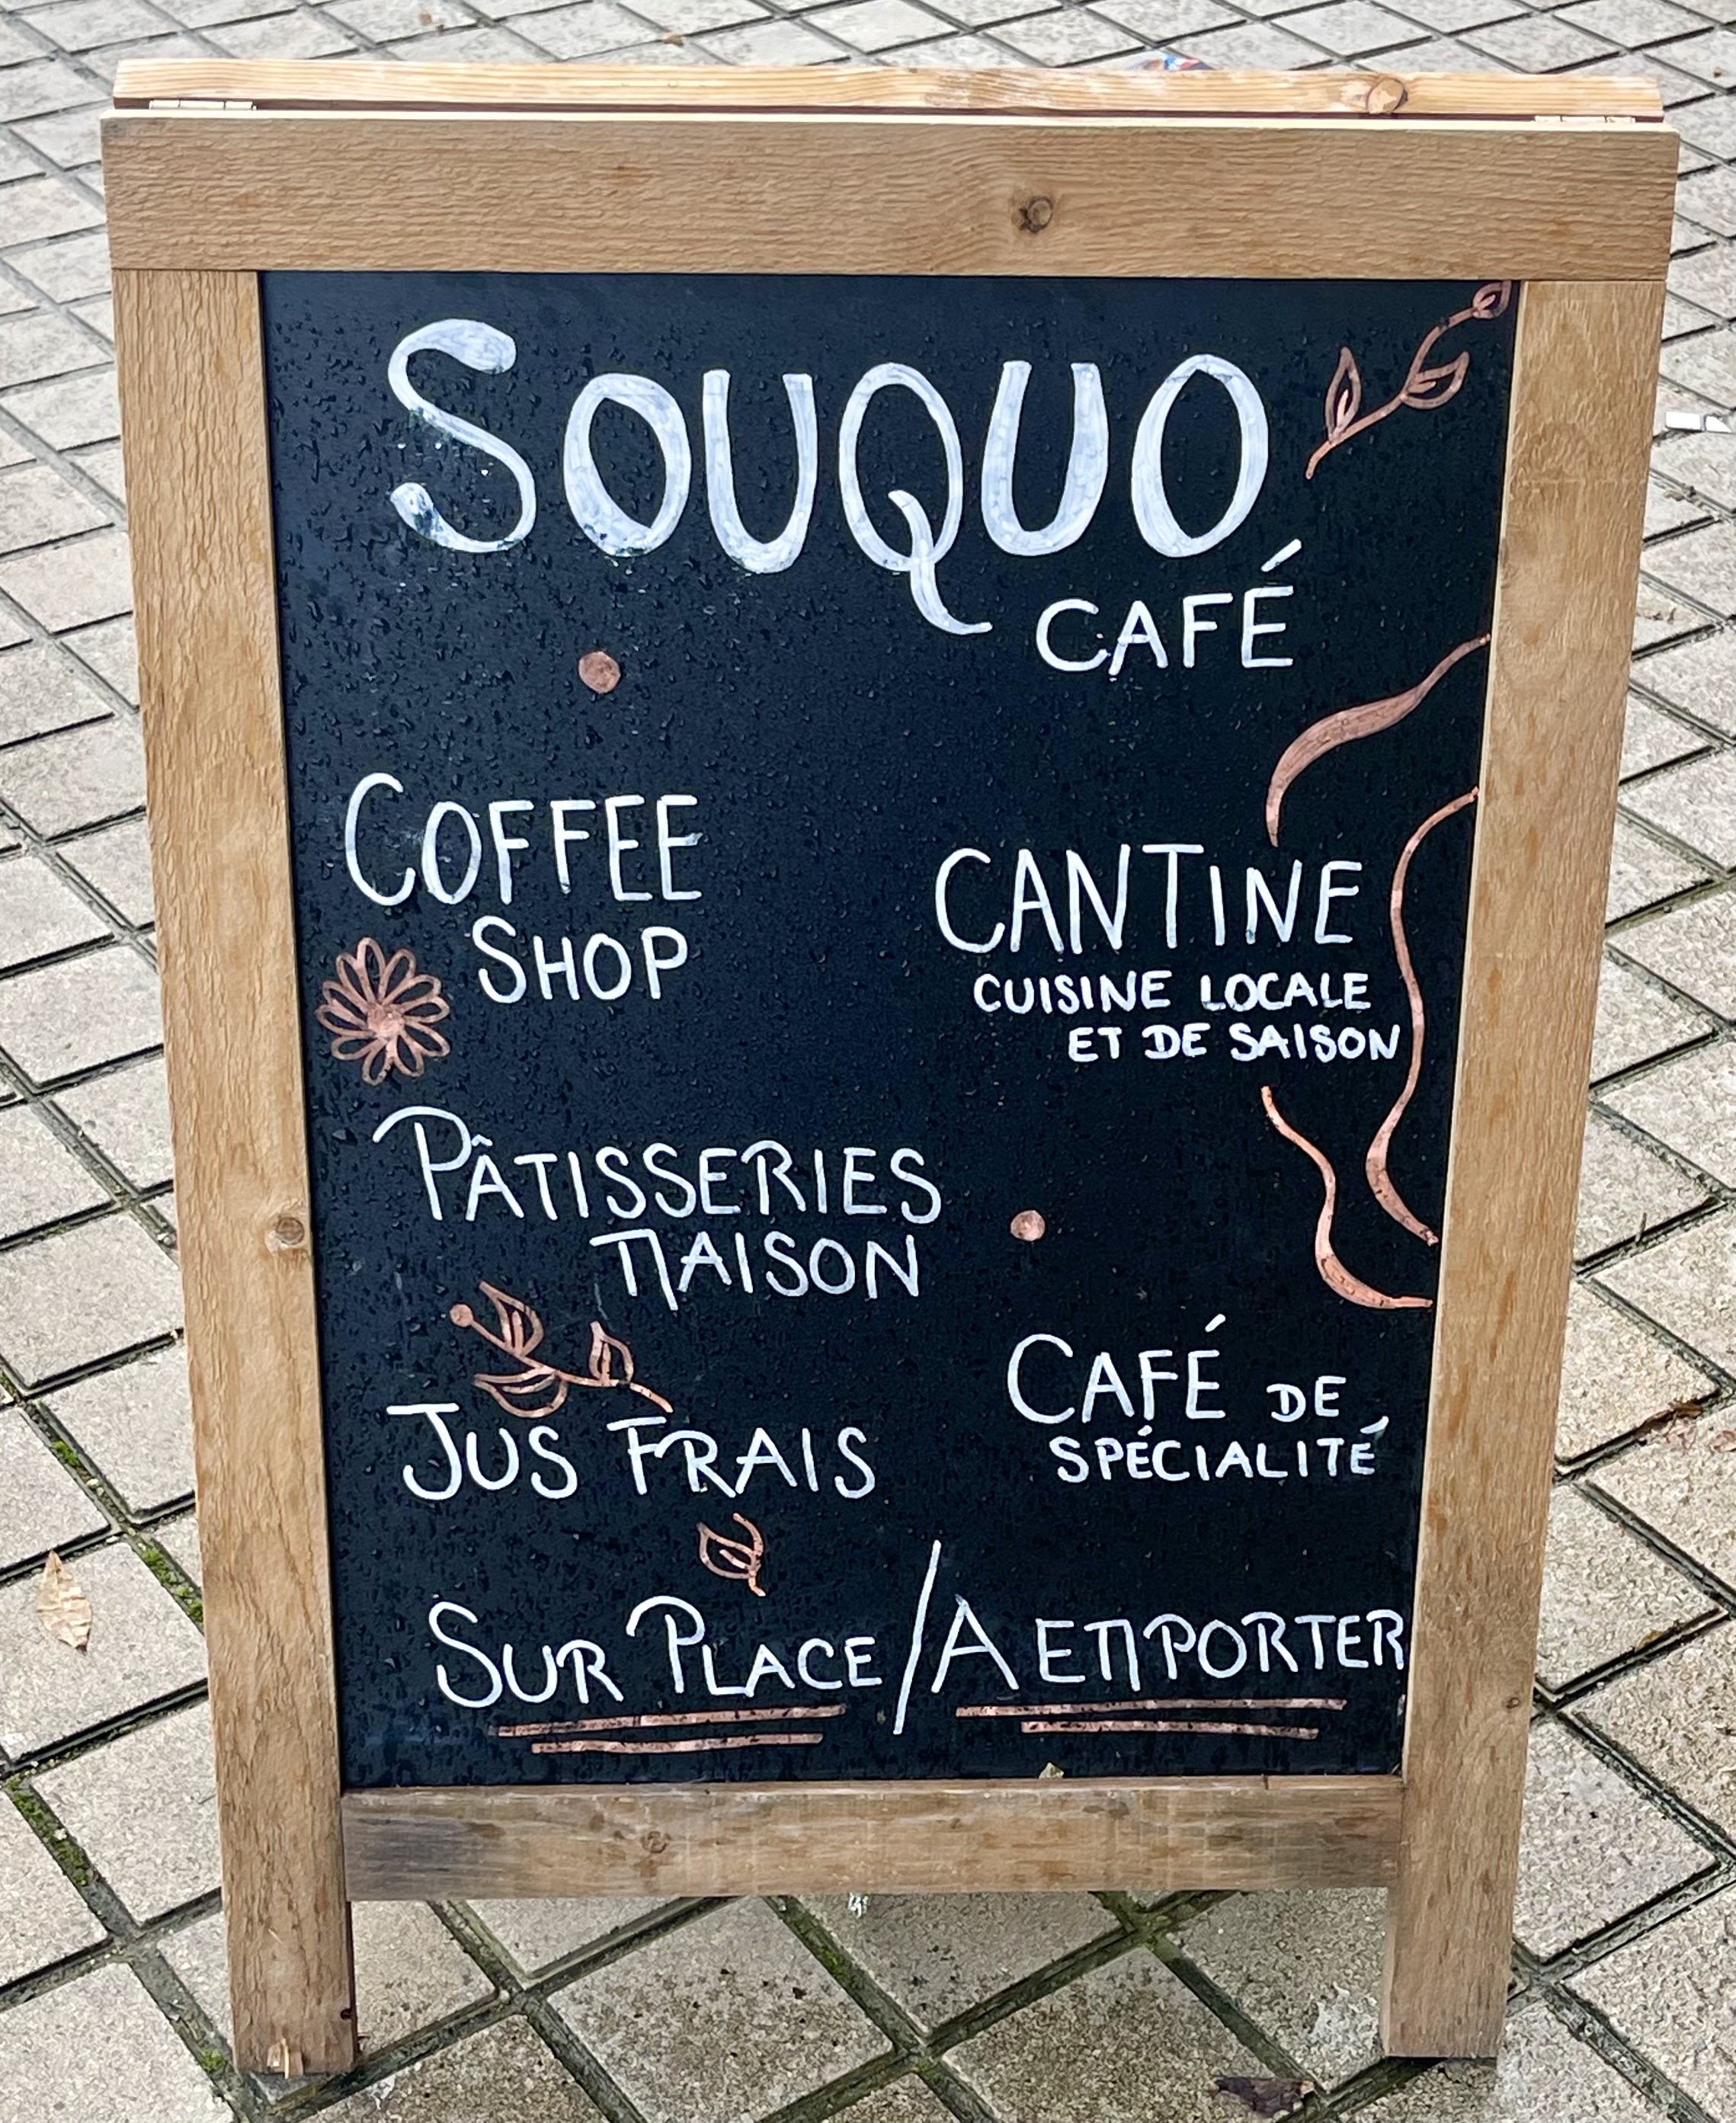 SOUQUO
CAFÉ
COFFEE
SHOP
CANTINE
CUISINE LOCALE
ET DE SAISON
PÂTISSERIES
MAISON
CAFÉ DE
SPÉCIALITÉ
JUS FRAIS
SUR PLACE / A EMPORTER